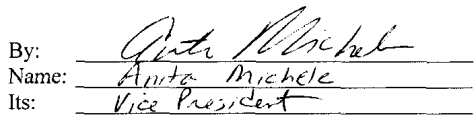 By: Anita Michele
Name: Anita Michele
Its: Vice President